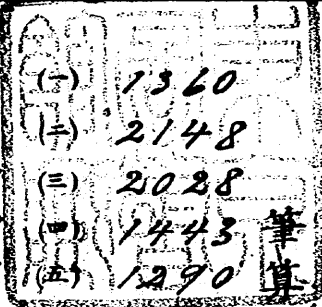 (一) 1360
(二) 2148
(三) 2028
(四) 1443
(五) 1290
筆算